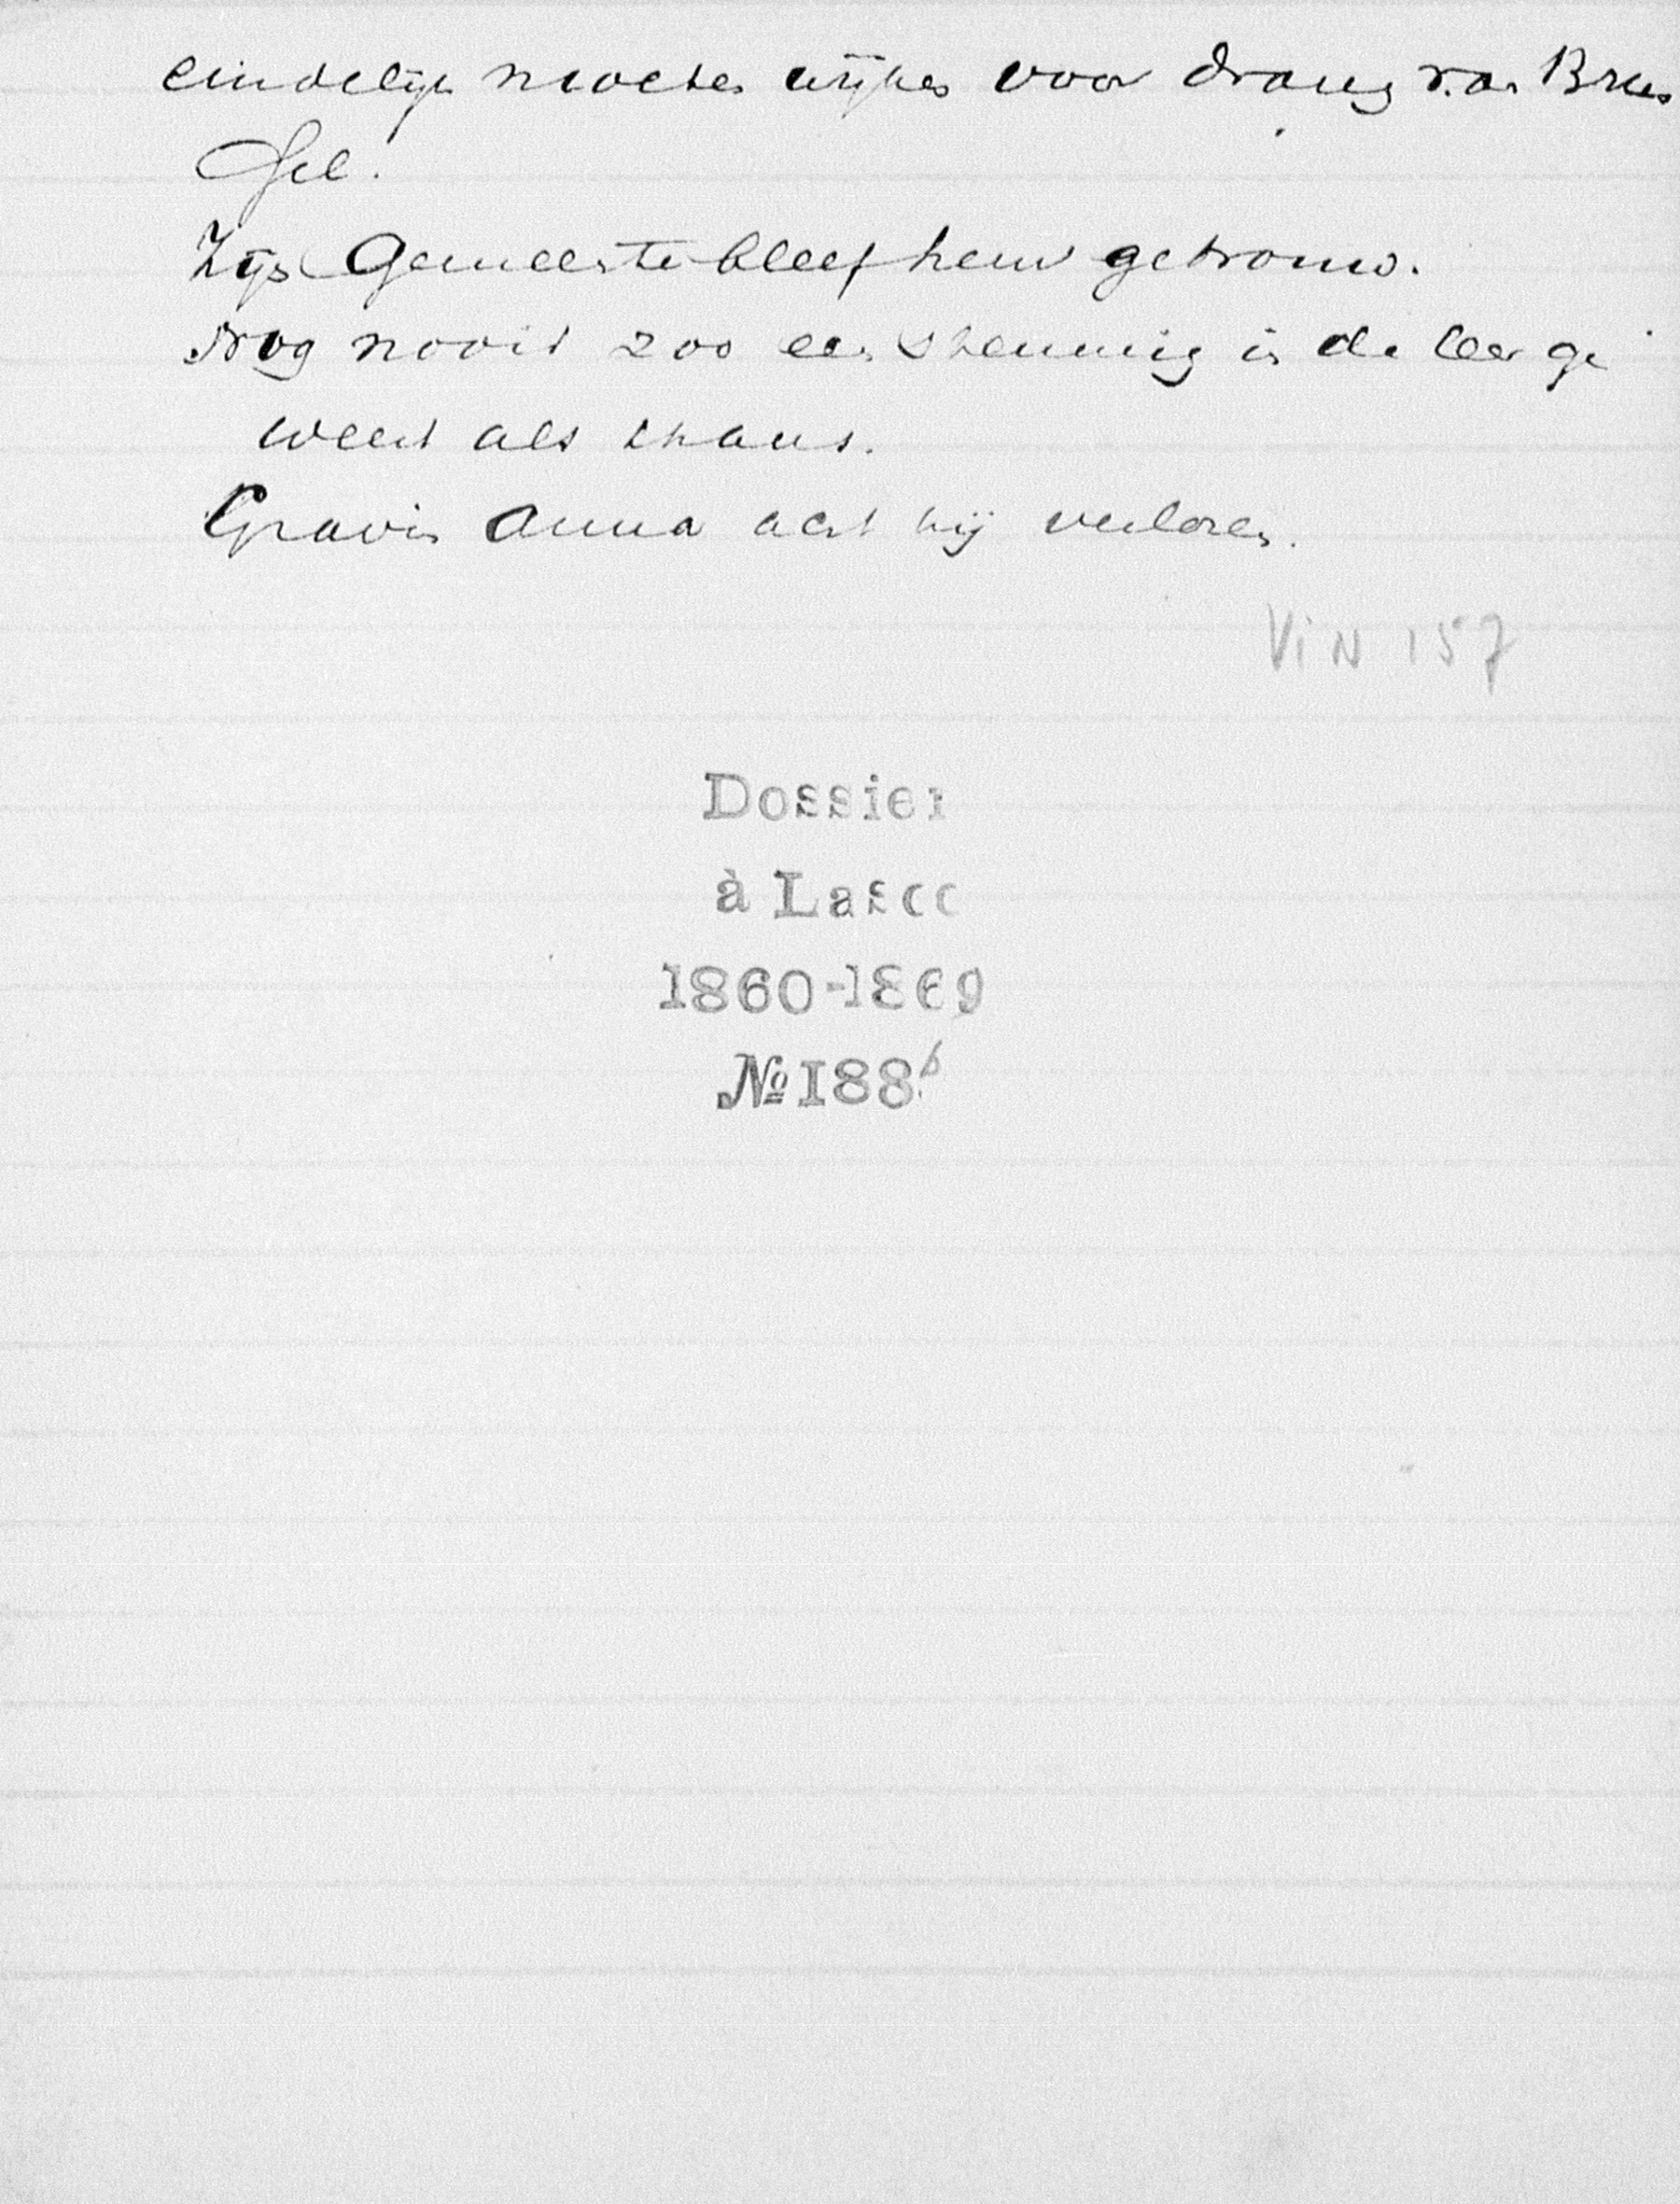 eindelijk moeten wijken voor drang van Brus
sel.
Zijn Gemeente bleef hem getrouw.
Nog nooit zoo een stemming in de leer ge
weest als thans.
Gravin Anna acht hij verloren.
VIN 157
Dossier
à Lasco
1860-1869
№ 188b